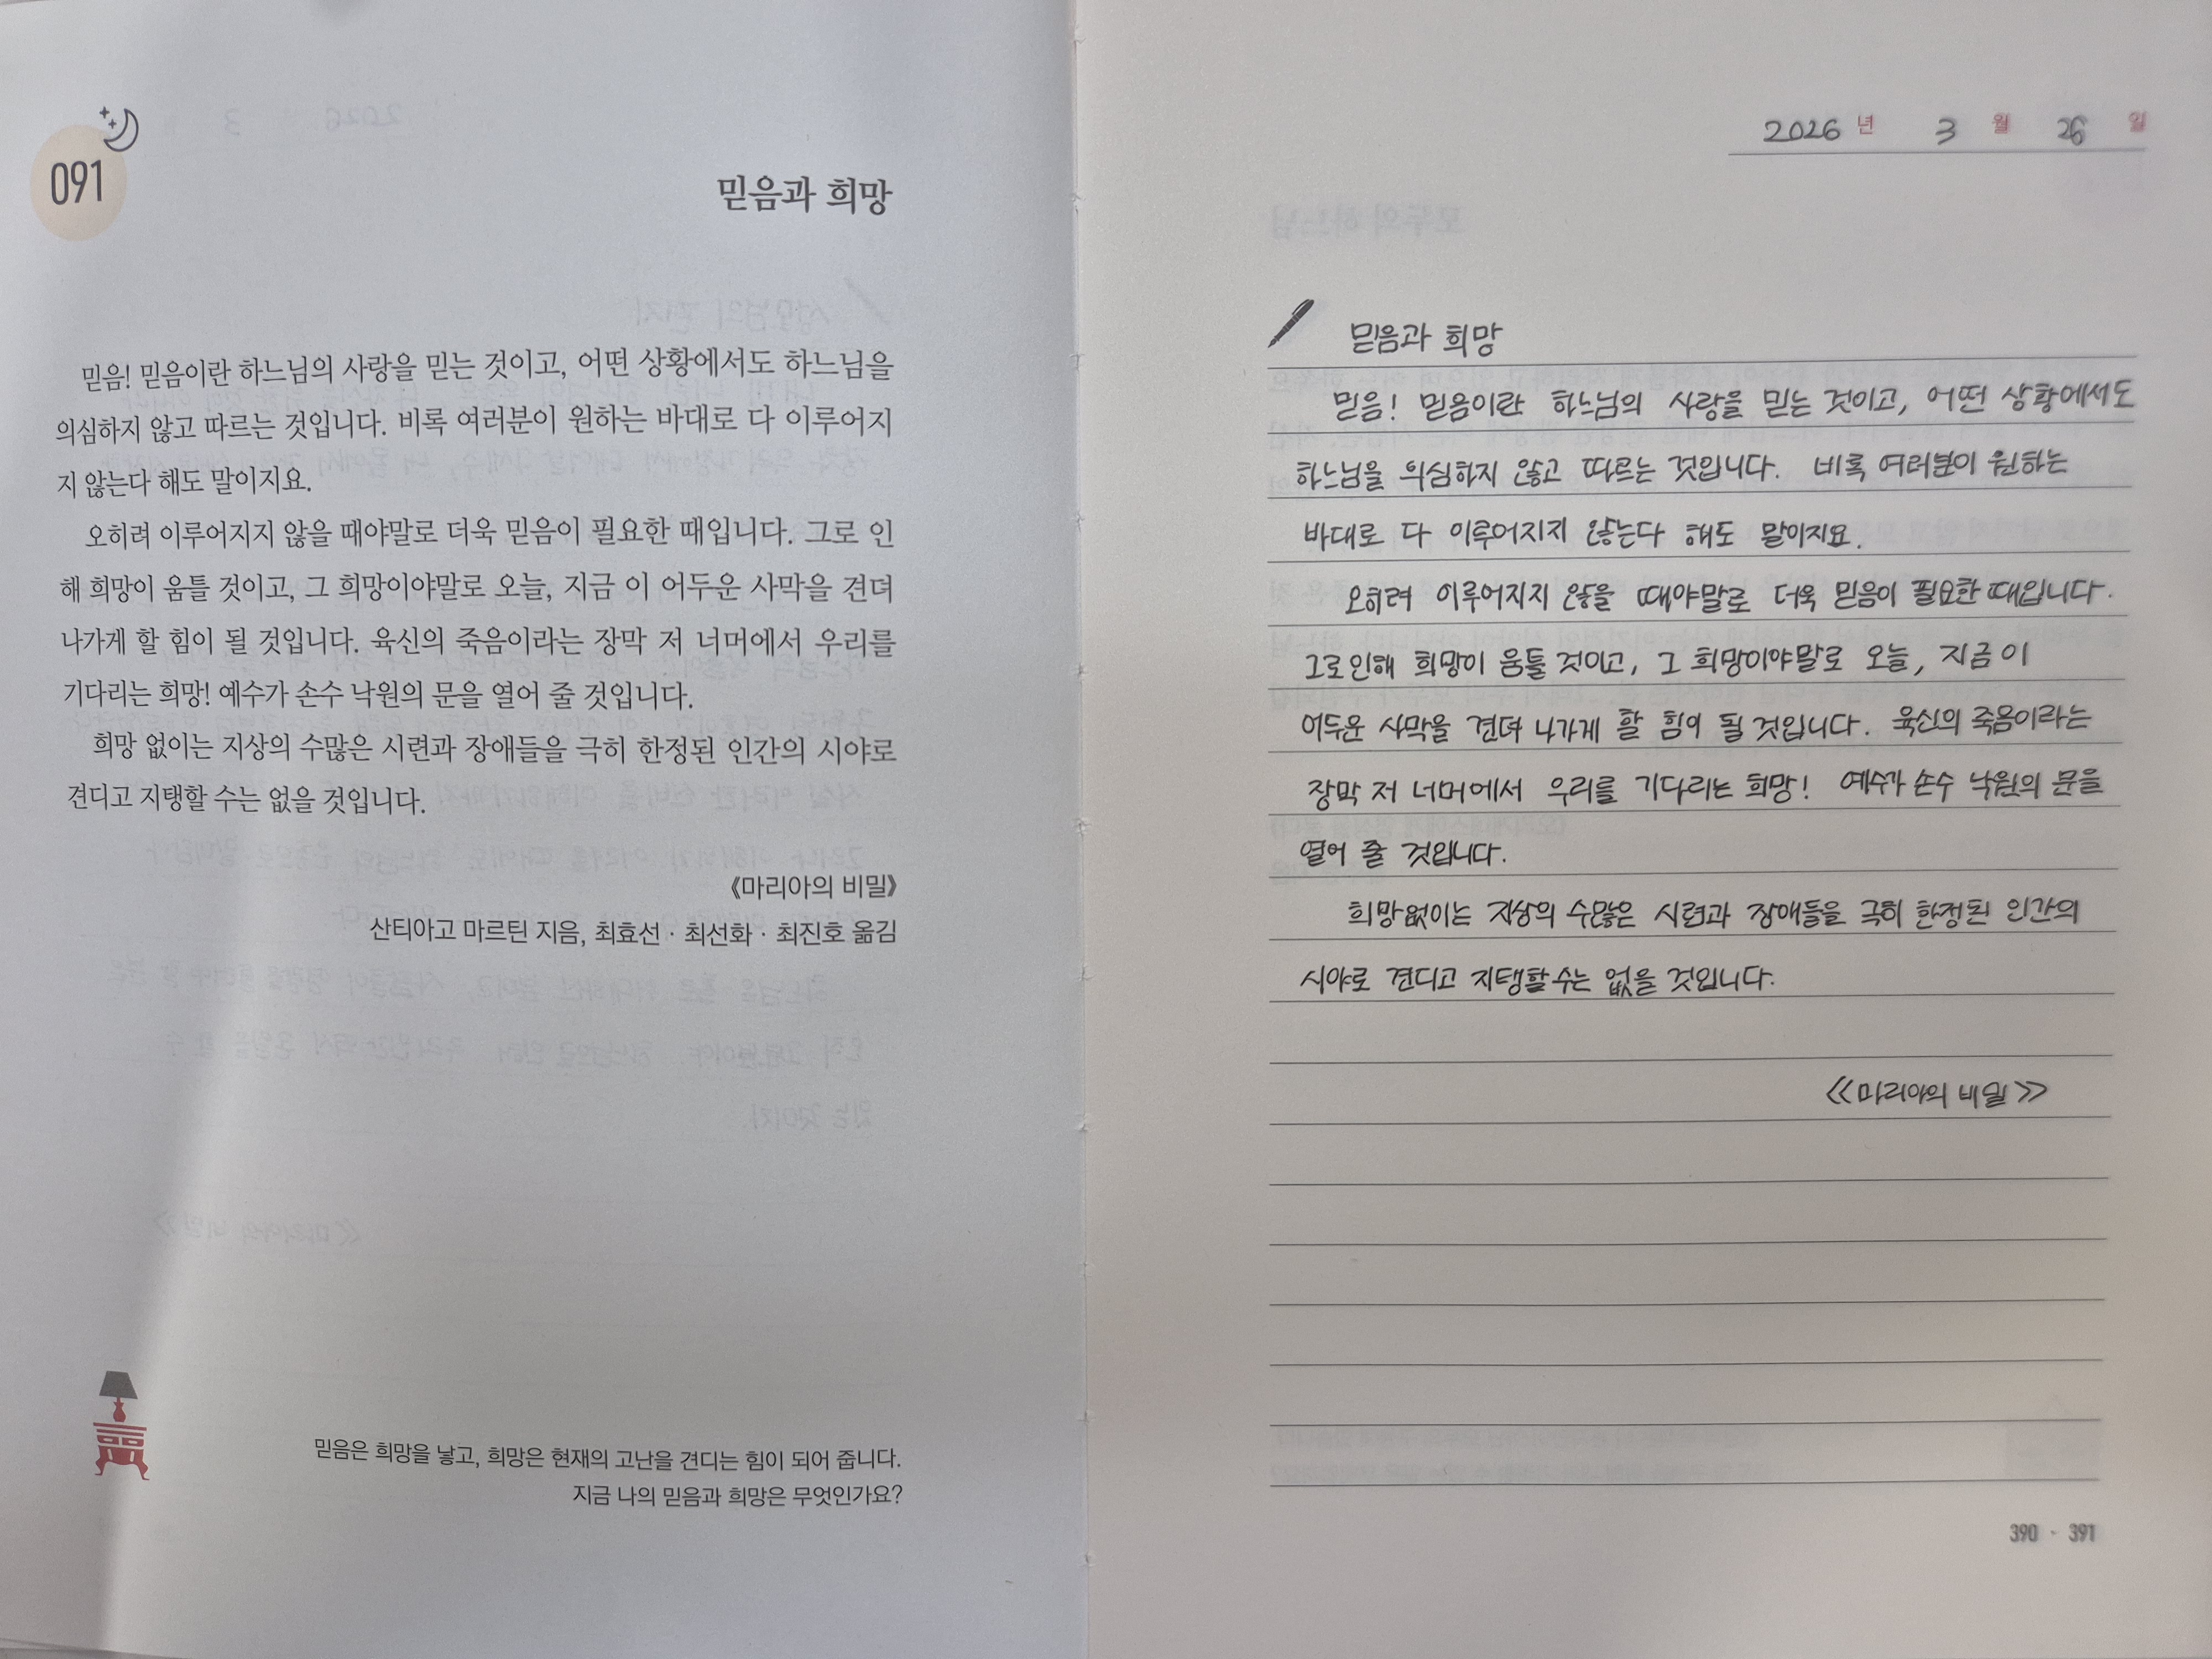 091
믿음과 희망
믿음! 믿음이란 하느님의 사랑을 믿는 것이고, 어떤 상황에서도 하느님을
의심하지 않고 따르는 것입니다. 비록 여러분이 원하는 바대로 다 이루어지
지 않는다 해도 말이지요.
오히려 이루어지지 않을 때야말로 더욱 믿음이 필요한 때입니다. 그로 인
해 희망이 움틀 것이고, 그 희망이야말로 오늘, 지금 이 어두운 사막을 견뎌
나가게 할 힘이 될 것입니다. 육신의 죽음이라는 장막 저 너머에서 우리를
기다리는 희망! 예수가 손수 낙원의 문을 열어 줄 것입니다.
희망 없이는 지상의 수많은 시련과 장애들을 극히 한정된 인간의 시야로
견디고 지탱할 수는 없을 것입니다.
《마리아의 비밀》
산티아고 마르틴 지음, 최효선 · 최선화 · 최진호 옮김
믿음은 희망을 낳고, 희망은 현재의 고난을 견디는 힘이 되어 줍니다.
지금 나의 믿음과 희망은 무엇인가요?
2026 년 3 월 26 일
믿음과 희망
믿음! 믿음이란 하느님의 사랑을 믿는 것이고, 어떤 상황에서도
하느님을 의심하지 않고 따르는 것입니다. 비록 여러분이 원하는
바대로 다 이루어지지 않는다 해도 말이지요.
오히려 이루어지지 않을 때야말로 더욱 믿음이 필요한 때입니다.
그로인해 희망이 움틀 것이고, 그 희망이야말로 오늘, 지금 이
어두운 사막을 견뎌 나가게 할 힘이 될 것입니다. 육신의 죽음이라는
장막 저 너머에서 우리를 기다리는 희망! 예수가 손수 낙원의 문을
열어 줄 것입니다.
희망없이는 지상의 수많은 시련과 장애들을 극히 한정된 인간의
시야로 견디고 지탱할수는 없을 것입니다.
《마리아의 비밀》
390 · 391